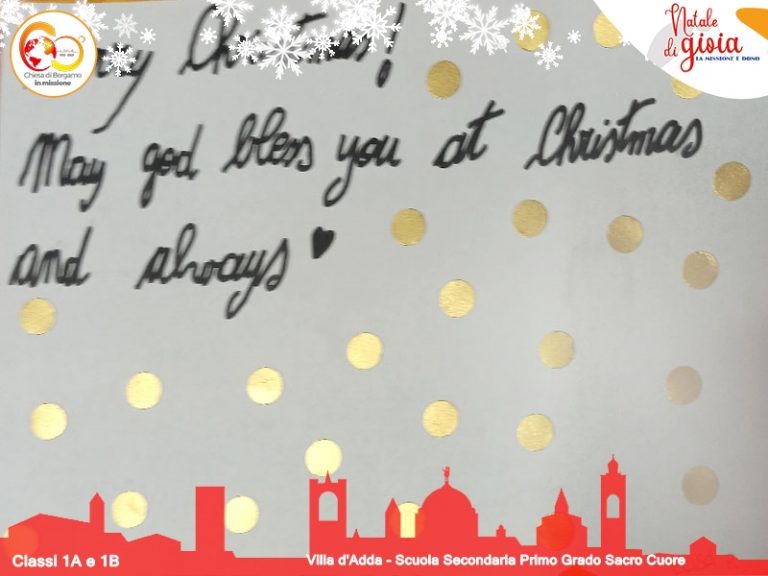 Christmas!
May god bless you at Christmas
and always
Chiesa di Bergamo
in missione
Natale
di gioia
LA MISSIONE È DONO
Classi 1A e 1B
Villa d'Adda - Scuola Secondaria Primo Grado Sacro Cuore